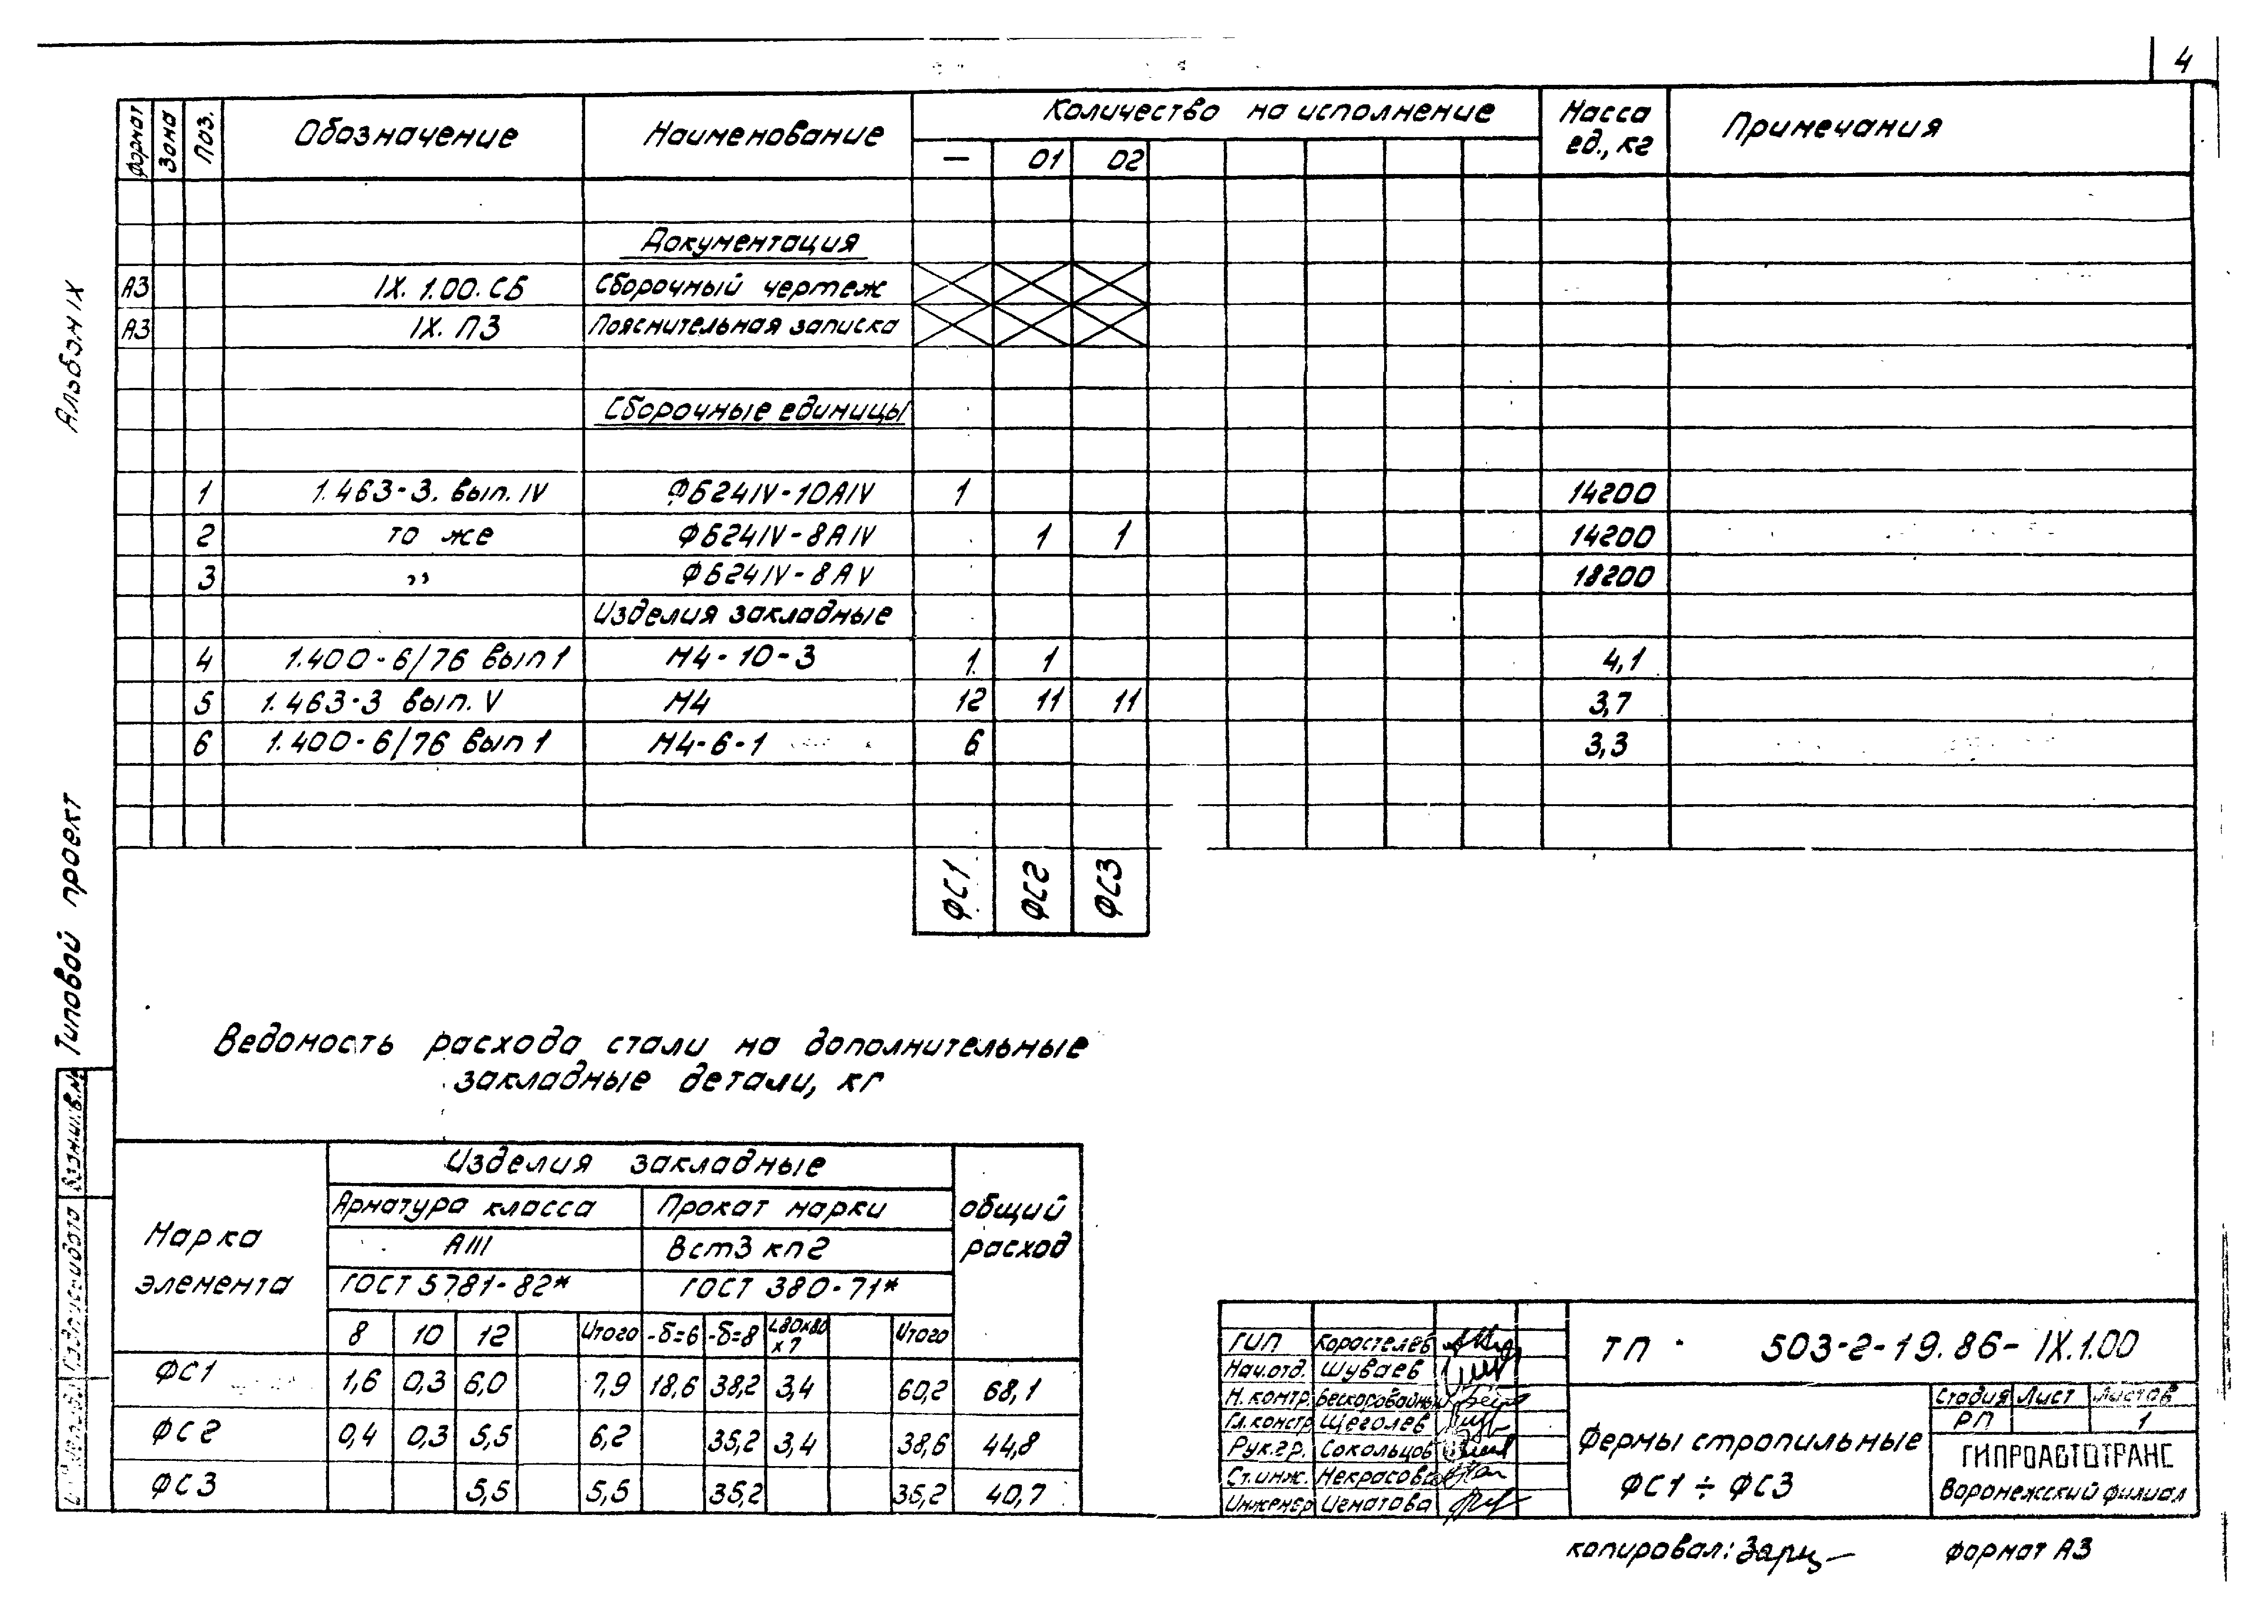 4
Формат Зона Поз. Обозначение Наименование Количество на исполнение Масса ед., кг Примечания
— 01 02
Документация
А3 IX. 1.00. СБ Сборочный чертеж
А3 IX. ПЗ Пояснительная записка
Сборочные единицы
1 1.463-3. вып. IV ФБ24IV-10АIV 1 14200
2 то же ФБ24IV-8АIV 1 1 14200
3 ,, ФБ24IV-8АV 18200
Изделия закладные
4 1.400-6/76 вып 1 М4-10-3 1 1 4,1
5 1.463-3 вып. V М4 12 11 11 3,7
6 1.400-6/76 вып 1 М4-6-1 6 3,3
ФС1 ФС2 ФС3
Альбом IX
Типовой проект
Ведомость расхода стали на дополнительные
закладные детали, кг
Марка элемента Изделия закладные общий расход
Арматура класса Прокат марки
АIII Вст3 кп2
ГОСТ 5781-82* ГОСТ 380-71*
8 10 12 Итого -δ=6 -δ=8 L80х80х7 Итого
ФС1 1,6 0,3 6,0 7,9 18,6 38,2 3,4 60,2 68,1
ФС2 0,4 0,3 5,5 6,2 35,2 3,4 38,6 44,8
ФС3 5,5 5,5 35,2 35,2 40,7
ТП 503-2-19.86-IX.1.00
ГИП Коростелев
Нач.отд. Шуваев
Н.контр. Бескоровайный
Гл.констр Щеголев
Рук.гр. Сокольцов
Ст.инж. Некрасова
Инженер Игнатова
Фермы стропильные
ФС1 ÷ ФС3
Стадия Лист Листов
РП 1
ГИПРОАВТОТРАНС
Воронежский филиал
копировал: Зарц
формат А3